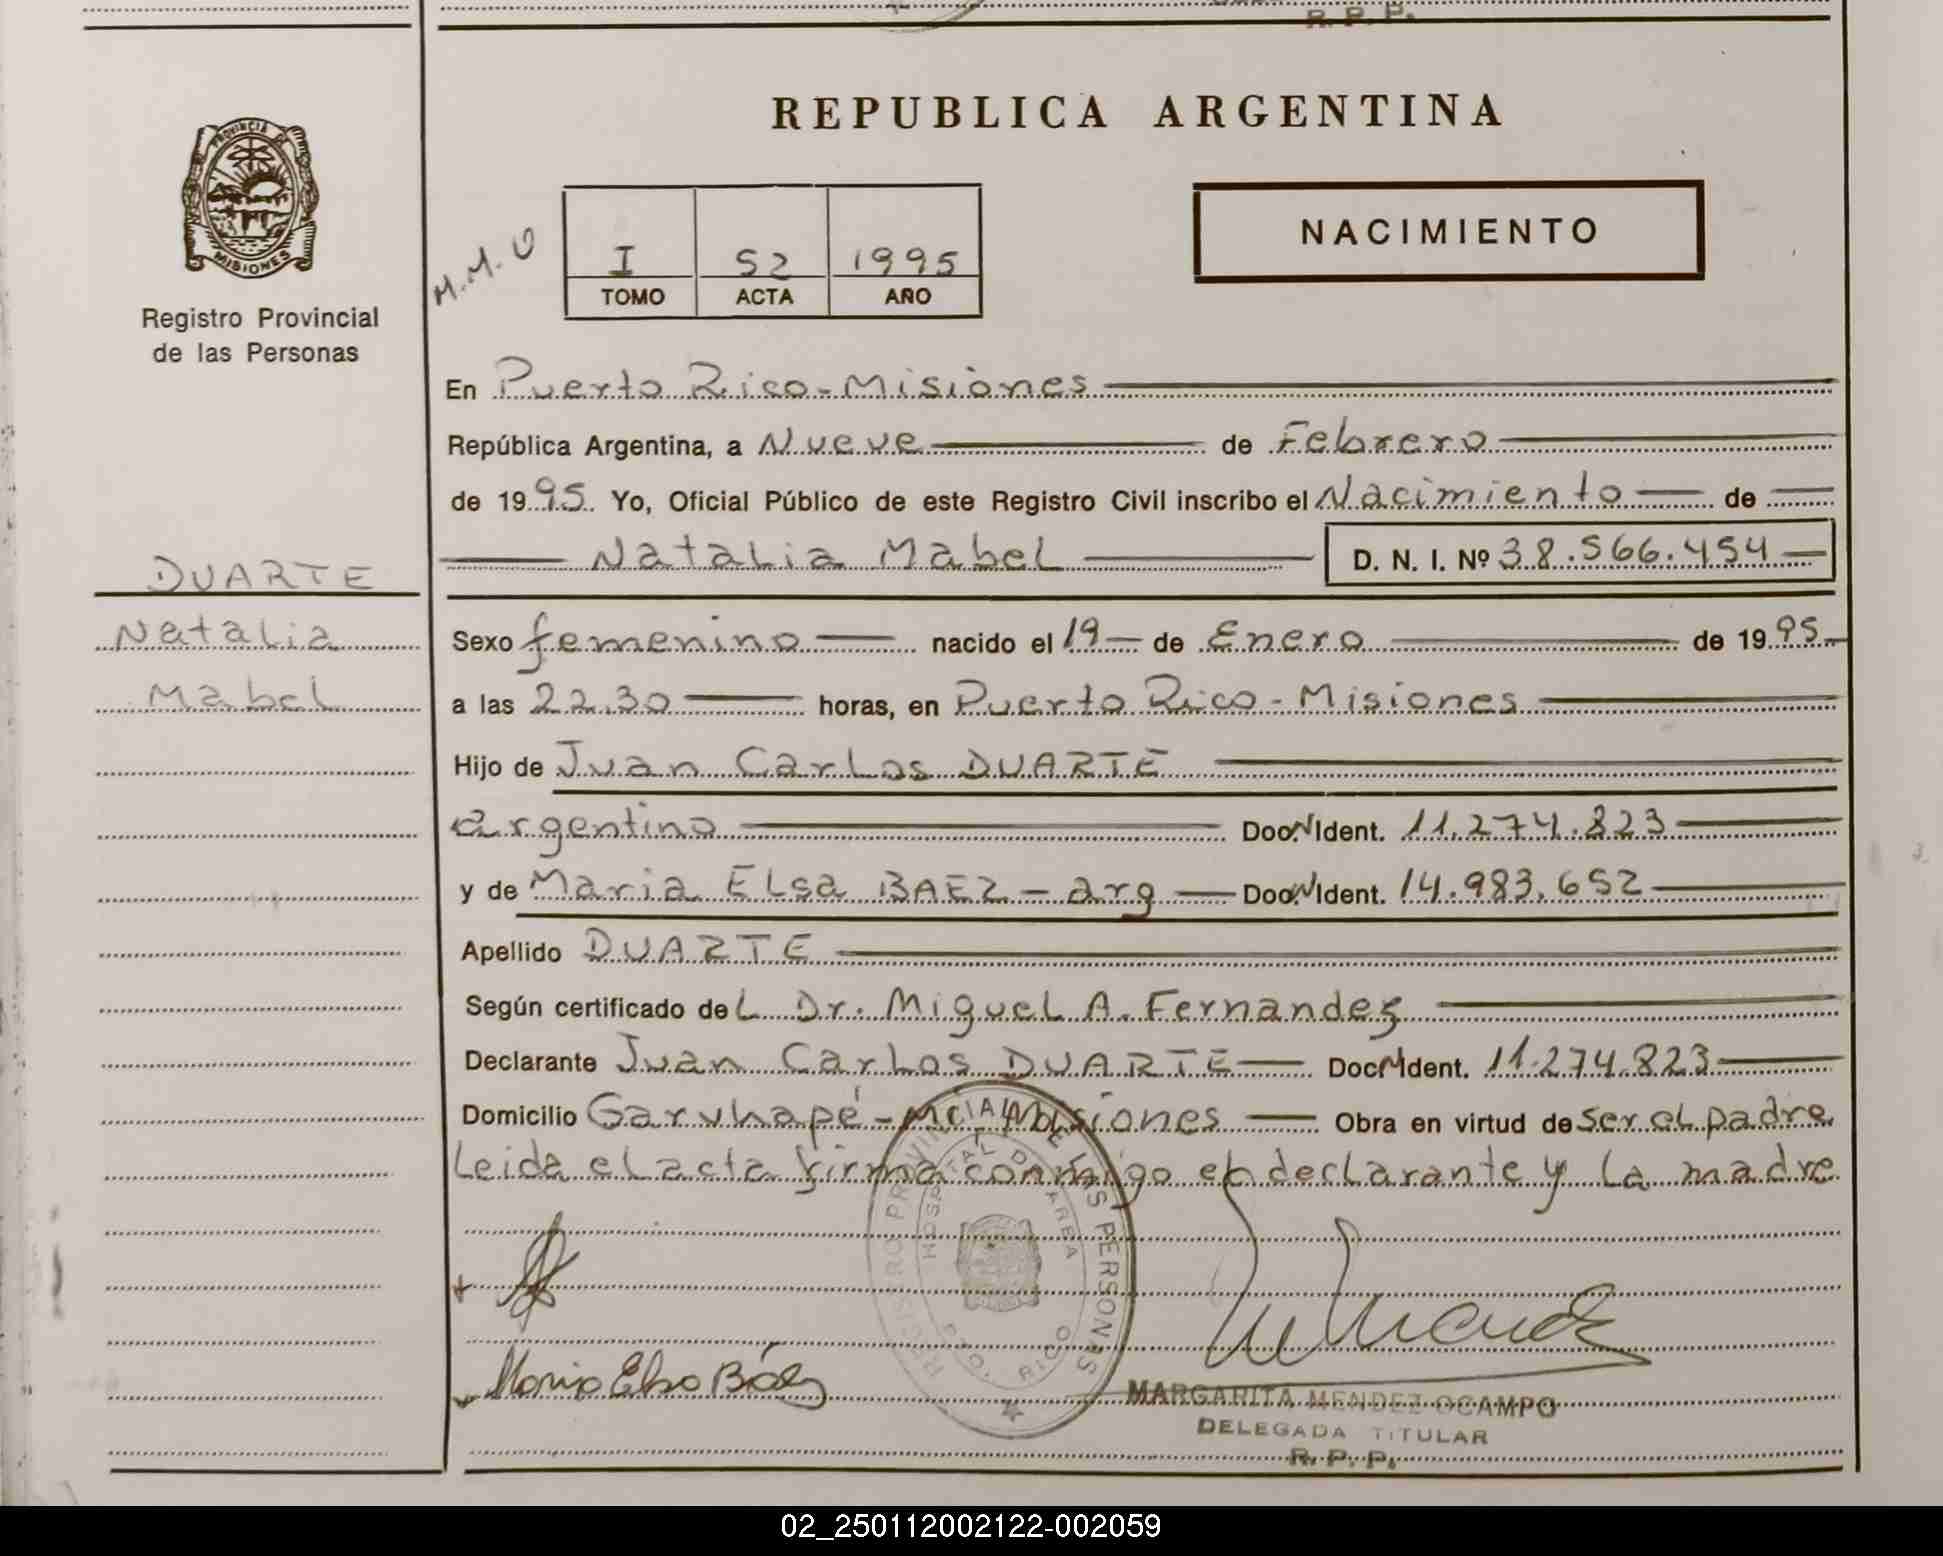 R. P. P.
REPUBLICA ARGENTINA
PROVINCIA DE
MISIONES
Registro Provincial
de las Personas
M.M.O
I 52 1995
TOMO ACTA AÑO
NACIMIENTO
En Puerto Rico-Misiones
República Argentina, a Nueve de Febrero
de 1995. Yo, Oficial Público de este Registro Civil inscribo el Nacimiento de
Natalia Mabel D. N. I. Nº 38.566.454
DUARTE
Natalia
Mabel
Sexo femenino nacido el 19 de Enero de 1995
a las 22.30 horas, en Puerto Rico-Misiones
Hijo de Juan Carlos DUARTE
argentino Doc.N Ident. 11.274.823
y de Maria Elsa BAEZ - arg Doc.N Ident. 14.983.652
Apellido DUARTE
Según certificado del Dr. Miguel A. Fernandez
Declarante Juan Carlos DUARTE Doc.N Ident. 11.274.823
Domicilio Garuhapé - Misiones Obra en virtud de ser el padre
Leida el acta firma conmigo el declarante y la madre
REGISTRO PROVINCIAL DE LAS PERSONAS
HOSPITAL DE AREA
PTO. RICO
Maria Elsa Báez
MARGARITA MENDEZ OCAMPO
DELEGADA TITULAR
R. P. P.
02_250112002122-002059